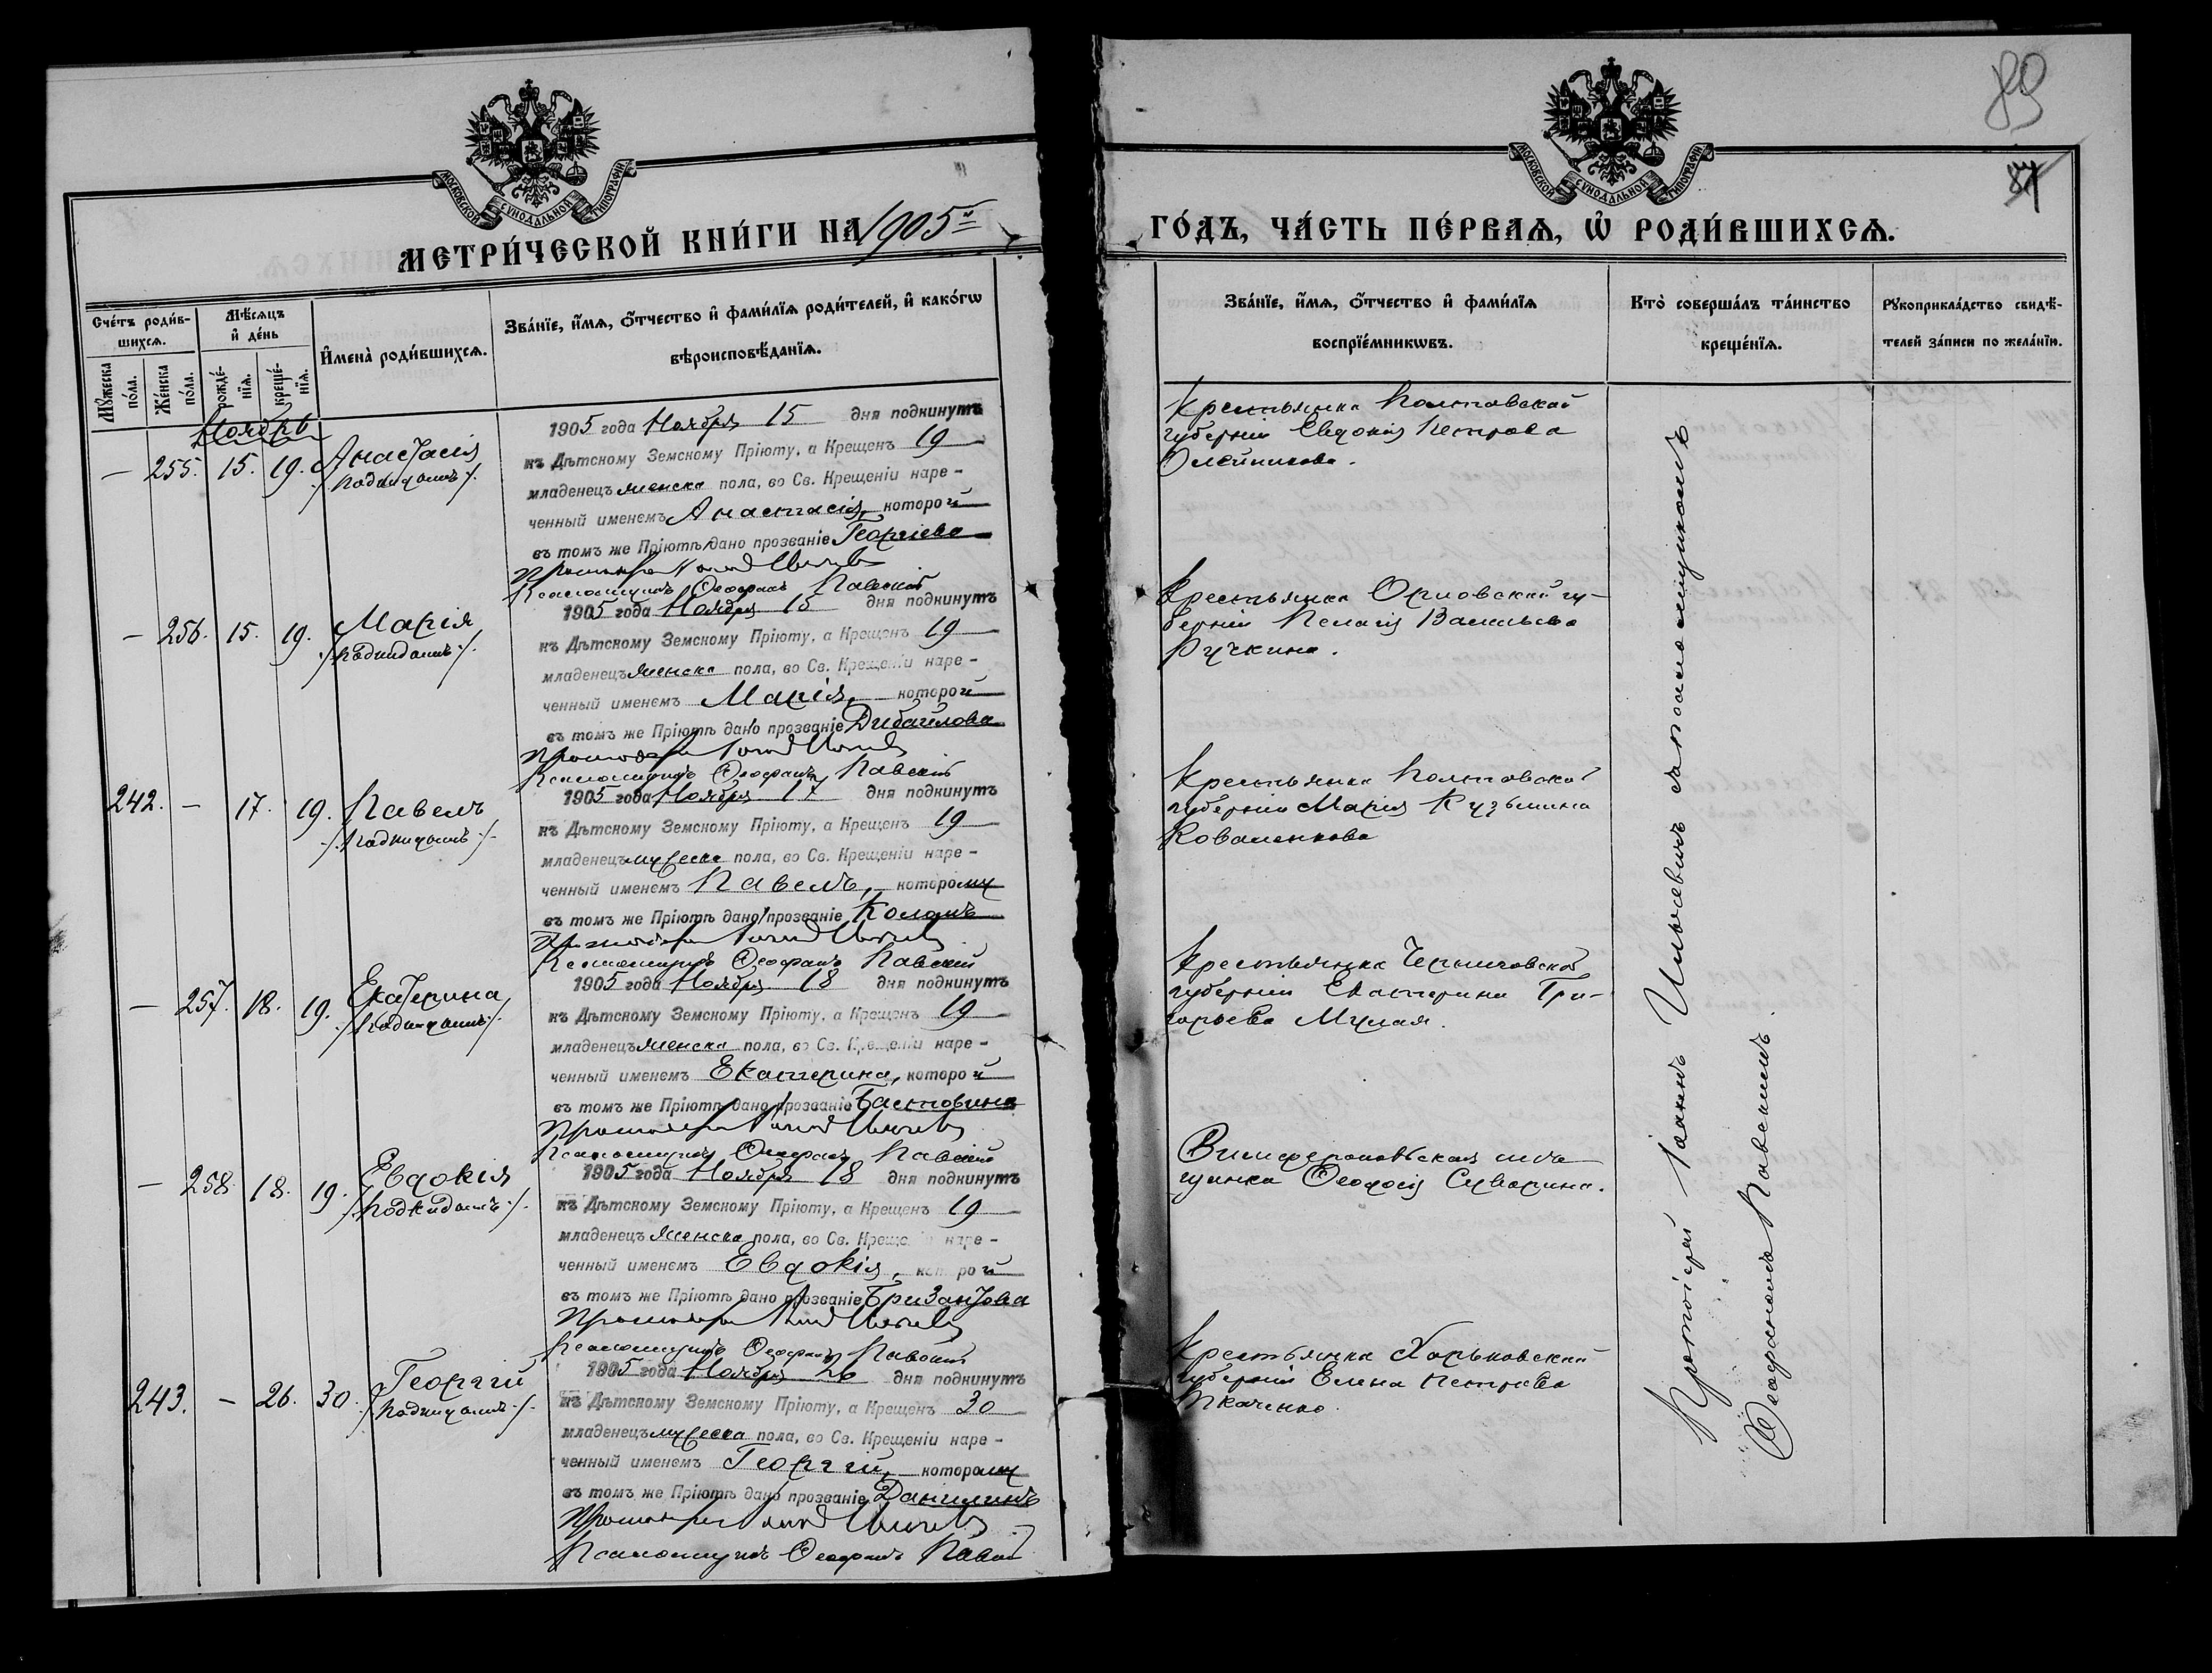 89
87
МОСКОВСКОЙ СѴНОДАЛЬНОЙ ТИПОГРАФІИ
МОСКОВСКОЙ СѴНОДАЛЬНОЙ ТИПОГРАФІИ
МЕТРИ́ЧЕСКОЙ КНИ́ГИ НА 1905й
ГО́ДЪ, ЧА́СТЬ ПЕ́РВАЯ, Ѡ҆ РОДИ́ВШИХСЯ.
Сче́тъ роди́в-
шихся.
Мѣ́сяцъ
и҆ де́нь
Мꙋ́жеска по́ла.
Же́нска по́ла.
рожде́-
нїя.
креще́-
нїя.
И҆мена̀ роди́вшихся.
Зва́нїе, и҆́мя, ѻ҆́тчество и҆ фами́лїя роди́телей, и҆ како́гѡ
вѣроисповѣ́данїя.
Зва́нїе, и҆́мя, ѻ҆́тчество и҆ фами́лїя
воспрїе́мникѡвъ.
Кто̀ соверша́лъ та́инство
креще́нїя.
Рꙋкоприкла́дство свидѣ́-
телей за́писи по жела́нїю.
Ноябрь
— 255. 15. 19. Анастасія
/Подкидышъ/.
1905 года Ноября 15 дня подкинутъ
къ Дѣтскому Земскому Пріюту, а Крещенъ 19
младенецъ женска пола, во Св. Крещеніи наре-
ченный именемъ Анастасія, которой
въ томъ же Пріютѣ дано прозваніе Георгіева
Псаломщикъ Ѳеофанъ Павскій
Крестьянка Полтавской
губерніи Евдокія Петрова
Олейникова.
— 256. 15. 19. Марія
/Подкидышъ/.
1905 года Ноября 15 дня подкинутъ
къ Дѣтскому Земскому Пріюту, а Крещенъ 19
младенецъ женска пола, во Св. Крещеніи наре-
ченный именемъ Марія, которой
въ томъ же Пріютѣ дано прозваніе
Псаломщикъ Ѳеофанъ Павскій
Крестьянка Орловской гу-
берніи Пелагія Васильева
Ручкина.
242. — 17. 19. Павелъ
/Подкидышъ/.
1905 года Ноября 17 дня подкинутъ
къ Дѣтскому Земскому Пріюту, а Крещенъ 19
младенецъ мужеска пола, во Св. Крещеніи наре-
ченный именемъ Павелъ, которому
въ томъ же Пріютѣ дано прозваніе
Псаломщикъ Ѳеофанъ Павскій
Крестьянка Полтавской
губерніи Марія Кузьмина
Коваленкова
— 257. 18. 19. Екатерина
/Подкидышъ/.
1905 года Ноября 18 дня подкинутъ
къ Дѣтскому Земскому Пріюту, а Крещенъ 19
младенецъ женска пола, во Св. Крещеніи наре-
ченный именемъ Екатерина, которой
въ томъ же Пріютѣ дано прозваніе
Псаломщикъ Ѳеофанъ Павскій
Крестьянка Черниговской
губерніи Екатерина Гри-
горьева
— 258. 18. 19. Евдокія
/Подкидышъ/.
1905 года Ноября 18 дня подкинутъ
къ Дѣтскому Земскому Пріюту, а Крещенъ 19
младенецъ женска пола, во Св. Крещеніи наре-
ченный именемъ Евдокія, которой
въ томъ же Пріютѣ дано прозваніе
Псаломщикъ Ѳеофанъ Павскій
Симферопольская мѣ
щанка Ѳеодосія Суворина.
243. — 26. 30. Георгій
/Подкидышъ/.
1905 года Ноября 26 дня подкинутъ
къ Дѣтскому Земскому Пріюту, а Крещенъ 30
младенецъ мужеска пола, во Св. Крещеніи наре-
ченный именемъ Георгій, которому
въ томъ же Пріютѣ дано прозваніе Данилинъ
Псаломщикъ Ѳеофанъ Павскій
Крестьянка Харьковской
губерніи Елена Петрова
Ткаченко.
Протоіерей Іоаннъ Ильчевичъ съ псаломщикомъ
Ѳеофаномъ Павскимъ.